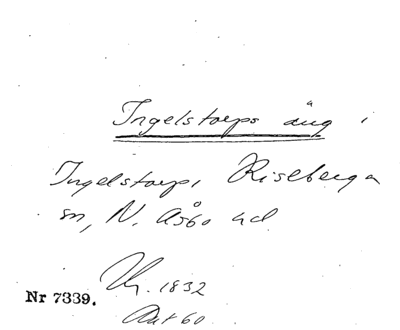 Ingelstorps äng i
Ingelstorp, Riseberga
sn, N. Åsbo hd
Nr 7339. 1832
Akt 60